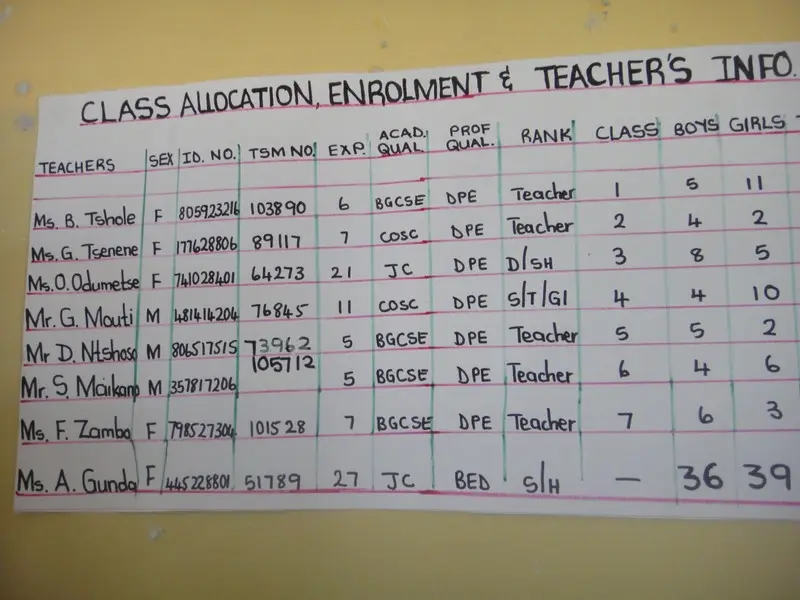 CLASS ALLOCATION, ENROLMENT & TEACHER'S INFO.
TEACHERS SEX ID. NO. TSM NO. EXP. ACAD. QUAL. PROF QUAL. RANK CLASS BOYS GIRLS
Ms. B. Tshole F 805923216 103890 6 BGCSE DPE Teacher 1 5 11
Ms. G. Tsenene F 177628806 89117 7 COSC DPE Teacher 2 4 2
Ms. O. Odumetse F 741028401 64273 21 JC DPE D/SH 3 8 5
Mr. G. Mouti M 481414204 76845 11 COSC DPE S/T/GI 4 4 10
Mr D. Ntshoso M 806517515 73962 5 BGCSE DPE Teacher 5 5 2
Mr. S. Maikano M 357817206 105712 5 BGCSE DPE Teacher 6 4 6
Ms. F. Zambo F 798527304 101528 7 BGCSE DPE Teacher 7 6 3
Ms. A. Gunda F 445228801 51789 27 JC BED S/H — 36 39